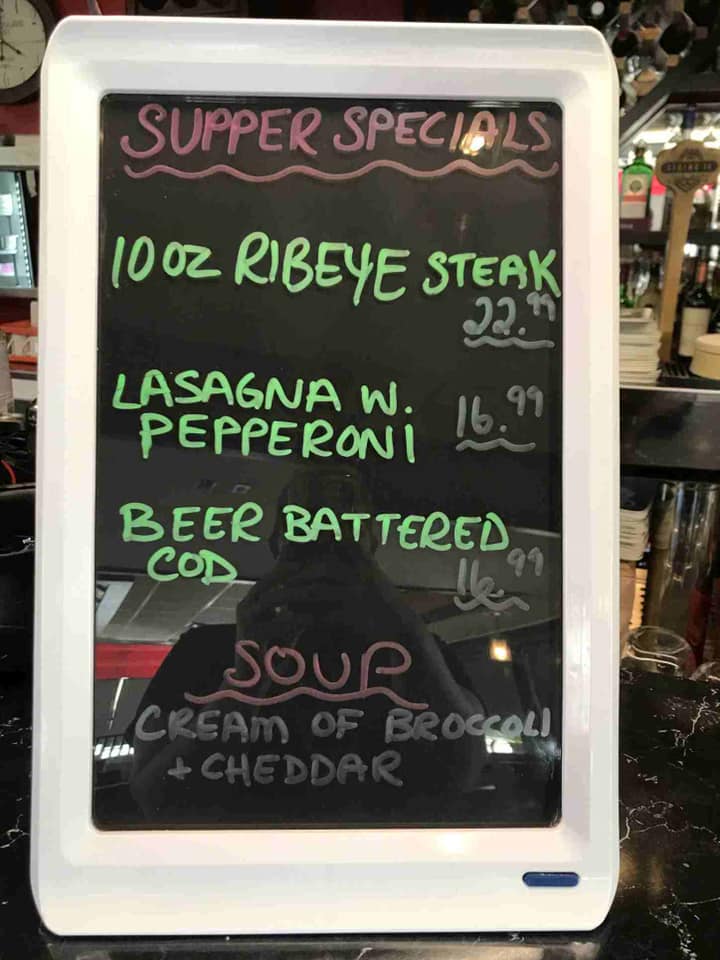 SUPPER SPECIALS
10 OZ RIBEYE STEAK
22.99
LASAGNA W.
PEPPERONI 16.99
BEER BATTERED
COD 16.99
SOUP
CREAM OF BROCCOLI
+ CHEDDAR